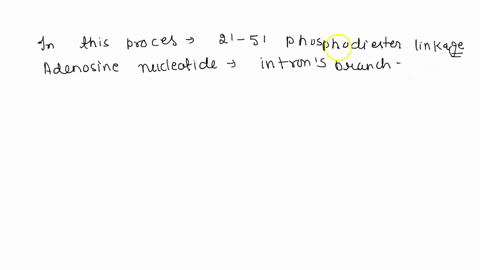 In this proces → 2'-5' phosphodiester linkage
Adenosine nucleatide → intron's branch -